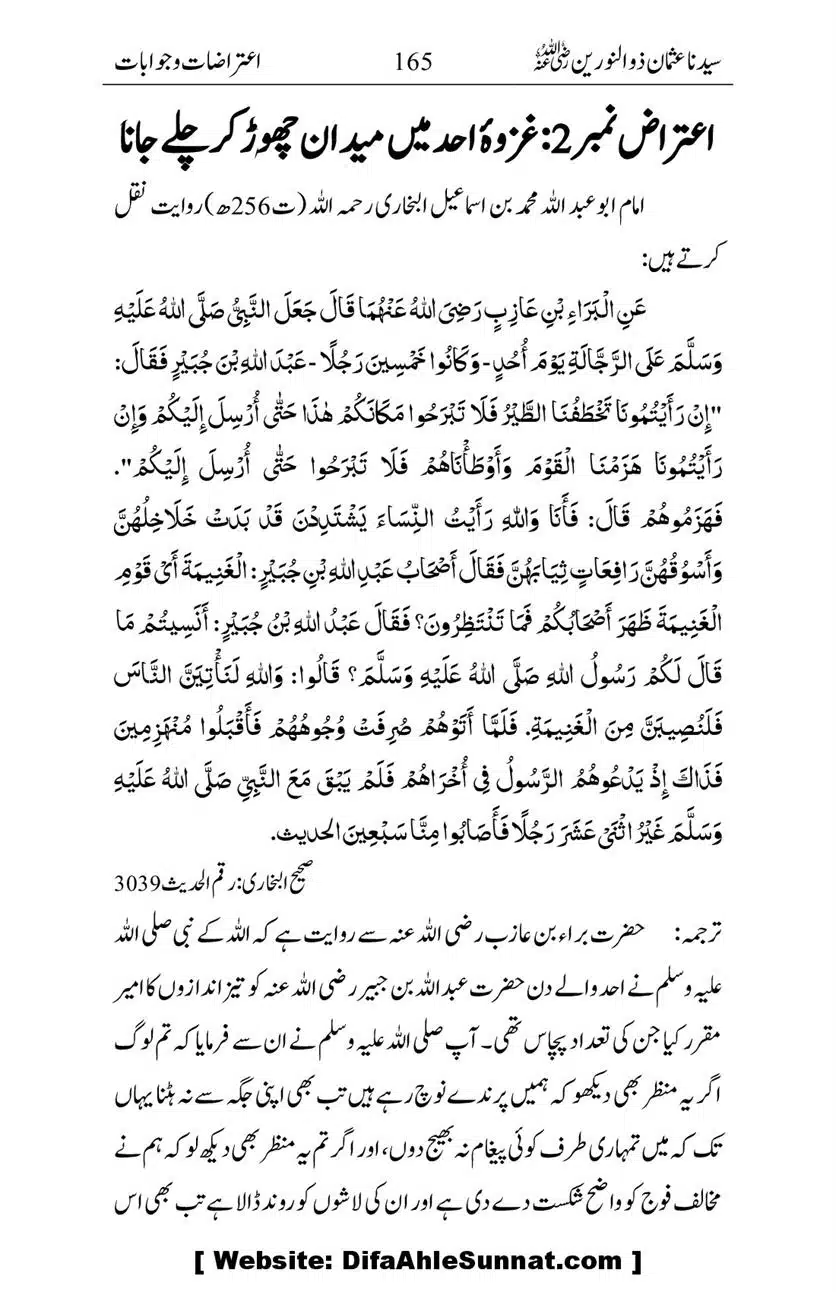 سیدنا عثمان ذوالنورین رضی اللہ عنہ 165 اعتراضات و جوابات
اعتراض نمبر 2: غزوۂ احد میں میدان چھوڑ کر چلے جانا
امام ابو عبد اللہ محمد بن اسماعیل البخاری رحمہ اللہ (ت256ھ) روایت نقل
کرتے ہیں:
عَنِ الْبَرَاءِ بْنِ عَازِبٍ رَضِیَ اللہُ عَنْہُمَا قَالَ جَعَلَ النَّبِیُّ صَلَّی اللہُ عَلَیْہِ
وَسَلَّمَ عَلَی الرَّجَّالَۃِ یَوْمَ أُحُدٍ - وَکَانُوا خَمْسِینَ رَجُلًا - عَبْدَ اللہِ بْنَ جُبَیْرٍ فَقَالَ:
"إِنْ رَأَیْتُمُونَا تَخْطَفُنَا الطَّیْرُ فَلَا تَبْرَحُوا مَکَانَکُمْ ہٰذَا حَتّٰی أُرْسِلَ إِلَیْکُمْ وَإِنْ
رَأَیْتُمُونَا ہَزَمْنَا الْقَوْمَ وَأَوْطَأْنَاہُمْ فَلَا تَبْرَحُوا حَتّٰی أُرْسِلَ إِلَیْکُمْ".
فَہَزَمُوہُمْ قَالَ: فَأَنَا وَاللہِ رَأَیْتُ النِّسَاءَ یَشْتَدِدْنَ قَدْ بَدَتْ خَلَاخِلُہُنَّ
وَأَسْوُقُہُنَّ رَافِعَاتٍ ثِیَابَہُنَّ فَقَالَ أَصْحَابُ عَبْدِ اللہِ بْنِ جُبَیْرٍ: الْغَنِیمَۃَ أَیْ قَوْمِ
الْغَنِیمَۃَ ظَہَرَ أَصْحَابُکُمْ فَمَا تَنْتَظِرُونَ؟ فَقَالَ عَبْدُ اللہِ بْنُ جُبَیْرٍ: أَنَسِیتُمْ مَا
قَالَ لَکُمْ رَسُولُ اللہِ صَلَّی اللہُ عَلَیْہِ وَسَلَّمَ؟ قَالُوا: وَاللہِ لَنَأْتِیَنَّ النَّاسَ
فَلَنُصِیبَنَّ مِنَ الْغَنِیمَۃِ. فَلَمَّا أَتَوْہُمْ صُرِفَتْ وُجُوہُہُمْ فَأَقْبَلُوا مُنْہَزِمِینَ
فَذَاکَ إِذْ یَدْعُوہُمُ الرَّسُولُ فِی أُخْرَاہُمْ فَلَمْ یَبْقَ مَعَ النَّبِیِّ صَلَّی اللہُ عَلَیْہِ
وَسَلَّمَ غَیْرُ اثْنَیْ عَشَرَ رَجُلًا فَأَصَابُوا مِنَّا سَبْعِینَ الحدیث.
صحیح البخاری: رقم الحدیث 3039
ترجمہ: حضرت براء بن عازب رضی اللہ عنہ سے روایت ہے کہ اللہ کے نبی صلی اللہ
علیہ وسلم نے احد والے دن حضرت عبد اللہ بن جبیر رضی اللہ عنہ کو تیز اندازوں کا امیر
مقرر کیا جن کی تعداد پچاس تھی۔ آپ صلی اللہ علیہ وسلم نے ان سے فرمایا کہ تم لوگ
اگر یہ منظر بھی دیکھو کہ ہمیں پرندے نوچ رہے ہیں تب بھی اپنی جگہ سے نہ ہٹنا یہاں
تک کہ میں تمہاری طرف کوئی پیغام نہ بھیج دوں، اور اگر تم یہ منظر بھی دیکھ لو کہ ہم نے
مخالف فوج کو واضح شکست دے دی ہے اور ان کی لاشوں کو روند ڈالا ہے تب بھی اس
[ Website: DifaAhleSunnat.com ]